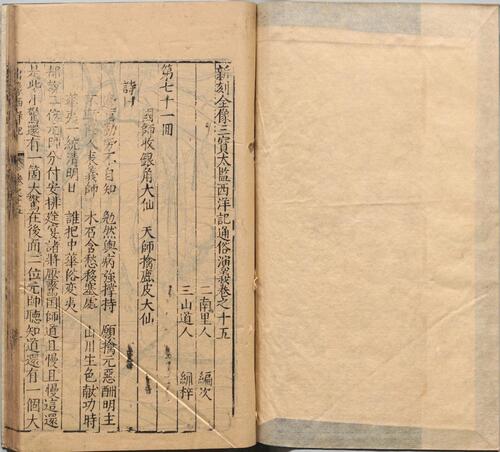 新刻全像三寶太監西洋記通俗演義卷之十五
二南里人 編次
三山道人 綉梓
第七十一回
國師收銀角大仙 天師擒鹿皮大仙
詩曰
不自知 勉然輿病強撐持 願擒元惡酬明主
人表義師 木石含愁移塞處 山川生色献功時
華夷一統清明日 誰把中華俗變夷
元帥分付安排筵宴諸將壓驚國師道且慢且慢這還
是些小驚還有一箇大驚在後面二位元帥聽知道還有一個大